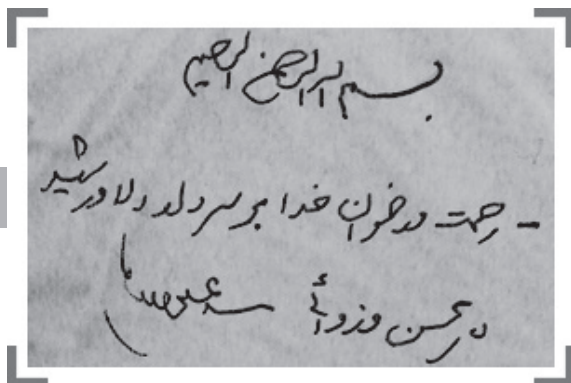 بسم الله الرحمن الرحیم
- رحمت و رضوان خدا بر سردار دلاور شهید
محسن وزوائی سید علی خامنه‌ای